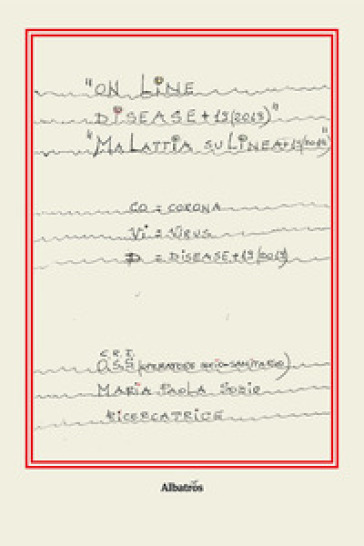 "ON LINE
DISEASE + 19(2019)"
"MALATTIA SU LINEA+19/2019"
CO = CORONA
Vi = VIRUS
D = DISEASE+19/2019)
C.R.I.
O.S.S (OPERATORE SOCIO-SANITARIO)
MARIA PAOLA SOZIO
RICERCATRICE
Albatros